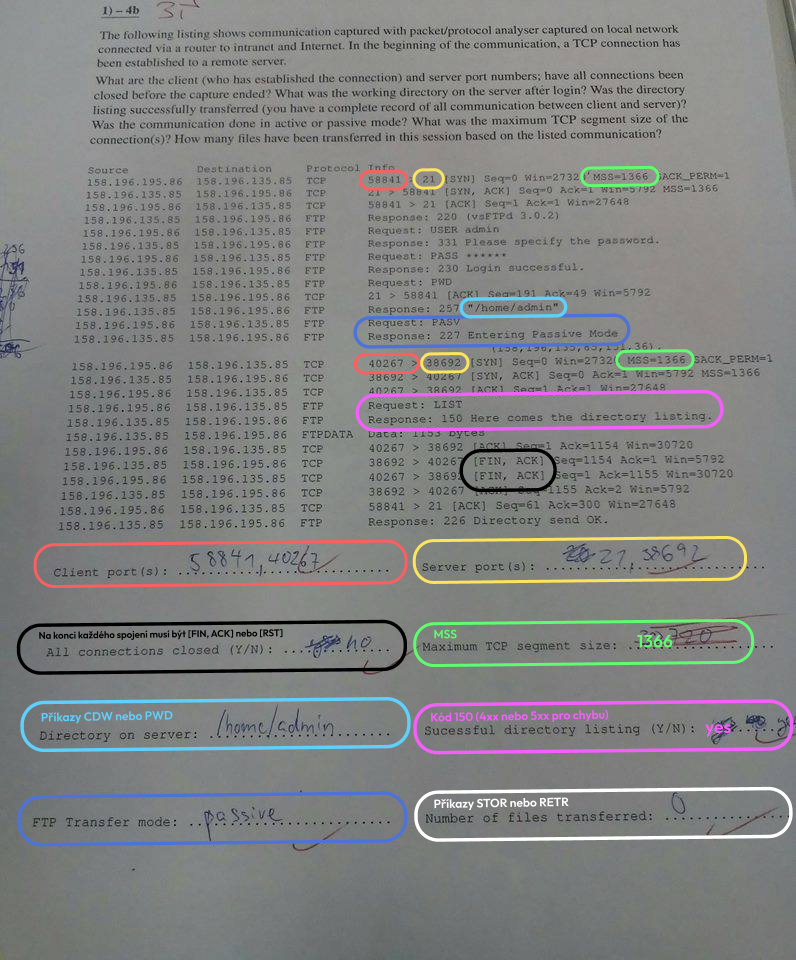 1) – 4b
The following listing shows communication captured with packet/protocol analyser captured on local network
connected via a router to intranet and Internet. In the beginning of the communication, a TCP connection has
been established to a remote server.
What are the client (who has established the connection) and server port numbers; have all connections been
closed before the capture ended? What was the working directory on the server after login? Was the directory
listing successfully transferred (you have a complete record of all communication between client and server)?
Was the communication done in active or passive mode? What was the maximum TCP segment size of the
connection(s)? How many files have been transferred in this session based on the listed communication?
Source Destination Protocol Info
158.196.195.86 158.196.135.85 TCP 58841 > 21 [SYN] Seq=0 Win=2732 MSS=1366 SACK_PERM=1
158.196.135.85 158.196.195.86 TCP 21 > 58841 [SYN, ACK] Seq=0 Ack=1 Win=5792 MSS=1366
158.196.195.86 158.196.135.85 TCP 58841 > 21 [ACK] Seq=1 Ack=1 Win=27648
158.196.135.85 158.196.195.86 FTP Response: 220 (vsFTPd 3.0.2)
158.196.195.86 158.196.135.85 FTP Request: USER admin
158.196.135.85 158.196.195.86 FTP Response: 331 Please specify the password.
158.196.195.86 158.196.135.85 FTP Request: PASS ******
158.196.135.85 158.196.195.86 FTP Response: 230 Login successful.
158.196.195.86 158.196.135.85 FTP Request: PWD
158.196.135.85 158.196.195.86 TCP 21 > 58841 [ACK] Seq=191 Ack=49 Win=5792
158.196.135.85 158.196.195.86 FTP Response: 257 "/home/admin"
158.196.195.86 158.196.135.85 FTP Request: PASV
158.196.135.85 158.196.195.86 FTP Response: 227 Entering Passive Mode
(158,196,135,85,151,36).
158.196.195.86 158.196.135.85 TCP 40267 > 38692 [SYN] Seq=0 Win=2732 MSS=1366 SACK_PERM=1
158.196.135.85 158.196.195.86 TCP 38692 > 40267 [SYN, ACK] Seq=0 Ack=1 Win=5792 MSS=1366
158.196.195.86 158.196.135.85 TCP 40267 > 38692 [ACK] Seq=1 Ack=1 Win=27648
158.196.195.86 158.196.135.85 FTP Request: LIST
158.196.135.85 158.196.195.86 FTP Response: 150 Here comes the directory listing.
158.196.135.85 158.196.195.86 FTPDATA Data: 1153 bytes
158.196.195.86 158.196.135.85 TCP 40267 > 38692 [ACK] Seq=1 Ack=1154 Win=30720
158.196.135.85 158.196.195.86 TCP 38692 > 40267 [FIN, ACK] Seq=1154 Ack=1 Win=5792
158.196.195.86 158.196.135.85 TCP 40267 > 38692 [FIN, ACK] Seq=1 Ack=1155 Win=30720
158.196.135.85 158.196.195.86 TCP 38692 > 40267 [ACK] Seq=1155 Ack=2 Win=5792
158.196.195.86 158.196.135.85 TCP 58841 > 21 [ACK] Seq=61 Ack=300 Win=27648
158.196.135.85 158.196.195.86 FTP Response: 226 Directory send OK.
Client port(s): 58841, 40267
Server port(s): 21, 38692
Na konci každého spojení musí být [FIN, ACK] nebo [RST]
All connections closed (Y/N): no
MSS
Maximum TCP segment size: 1366
Příkazy CDW nebo PWD
Directory on server: /home/admin
Kód 150 (4xx nebo 5xx pro chybu)
Sucessful directory listing (Y/N): yes
FTP Transfer mode: passive
Příkazy STOR nebo RETR
Number of files transferred: 0